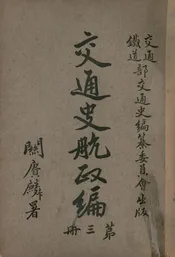 交通
鐵道部交通史編纂委員會出版
交通史航政編
第三冊
關賡麟署